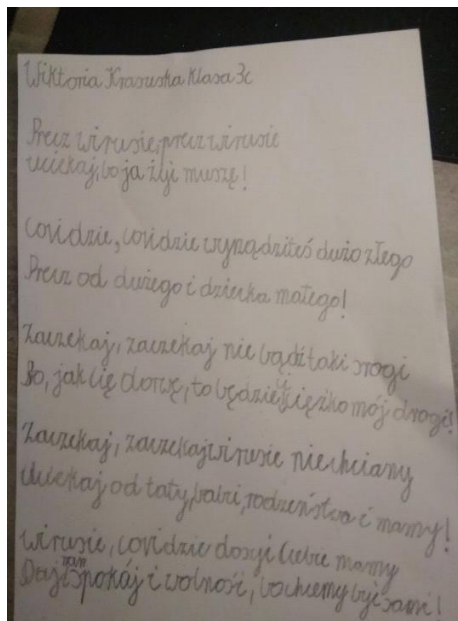 Wiktoria Krasuska Klasa 3c
Precz wirusie, precz wirusie
uciekaj, bo ja żyć muszę!
Covidzie, covidzie wyrządziłeś dużo złego
Precz od dużego i dziecka małego!
Zaczekaj, zaczekaj nie bądź taki srogi
Bo, jak cię dorwę, to będzie ci ciężko mój drogi!
Zaczekaj, zaczekaj wirusie niechciany
Uciekaj od taty, babci, rodzeństwa i mamy!
Wirusie, covidzie dosyć Ciebie mamy
Daj nam spokój i wolność, bo chcemy być sami!